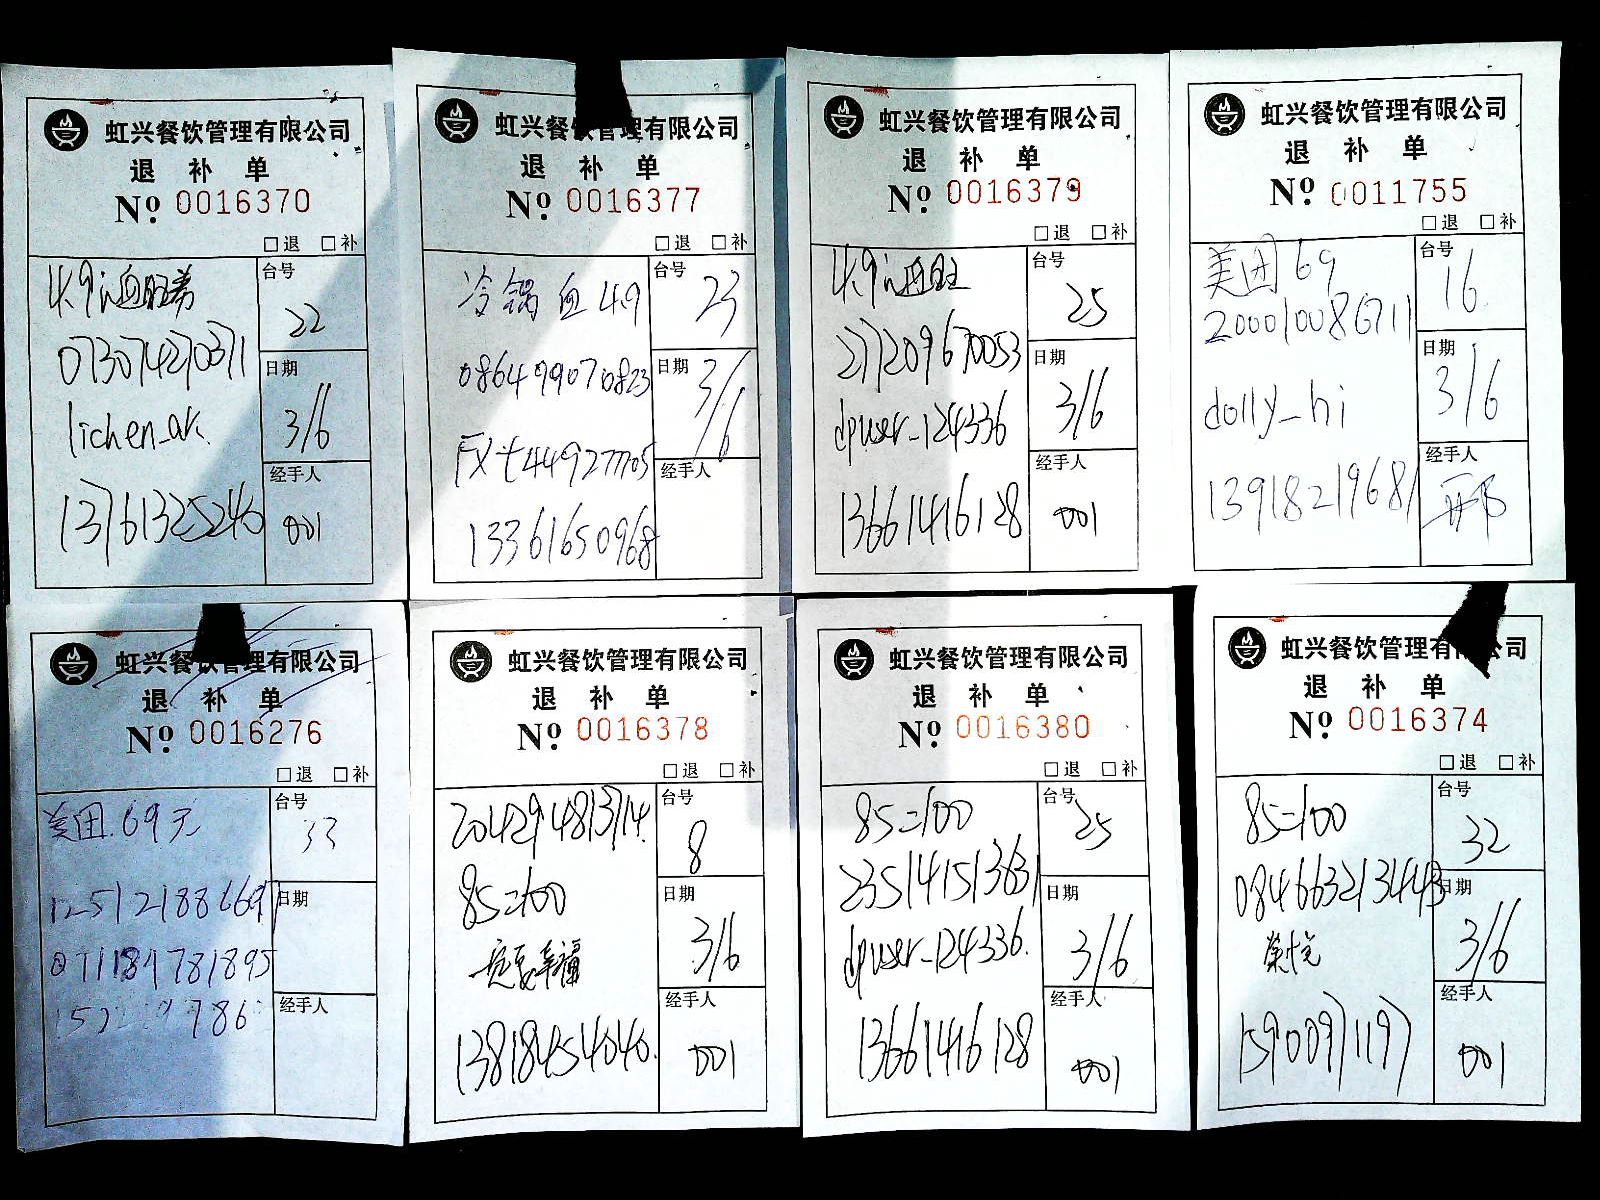 虹兴餐饮管理有限公司
退 补 单
No. 0016370
□退 □补
4.9 血旺券
台号
22
073074270371
日期
3/6
lichen_ak
经手人
13761325246
001
虹兴餐饮管理有限公司
退 补 单
No. 0016377
□退 □补
冷锅血 4.9
台号
23
086499070823
日期
3/6
经手人
13361650968
虹兴餐饮管理有限公司
退 补 单
No. 0016379
□退 □补
4.9 血旺
台号
25
277209670053
日期
3/6
dpuser_124336
经手人
13661416128
001
虹兴餐饮管理有限公司
退 补 单
No. 0011755
□退 □补
美团 69
台号
16
200010086711
日期
3/6
dolly_hi
经手人
13918219681
邢
虹兴餐饮管理有限公司
退 补 单
No. 0016276
□退 □补
美团.69元
台号
33
125121886691
日期
071184781895
经手人
虹兴餐饮管理有限公司
退 补 单
No. 0016378
□退 □补
204294813714
台号
8
85=100
日期
3/6
一定要幸福
经手人
13818454040
001
虹兴餐饮管理有限公司
退 补 单
No. 0016380
□退 □补
85=100
台号
25
235141513631
日期
3/6
dpuser_124336
经手人
13661416128
001
虹兴餐饮管理有限公司
退 补 单
No. 0016374
□退 □补
85=100
台号
32
084663213443
日期
3/6
经手人
15900971197
001